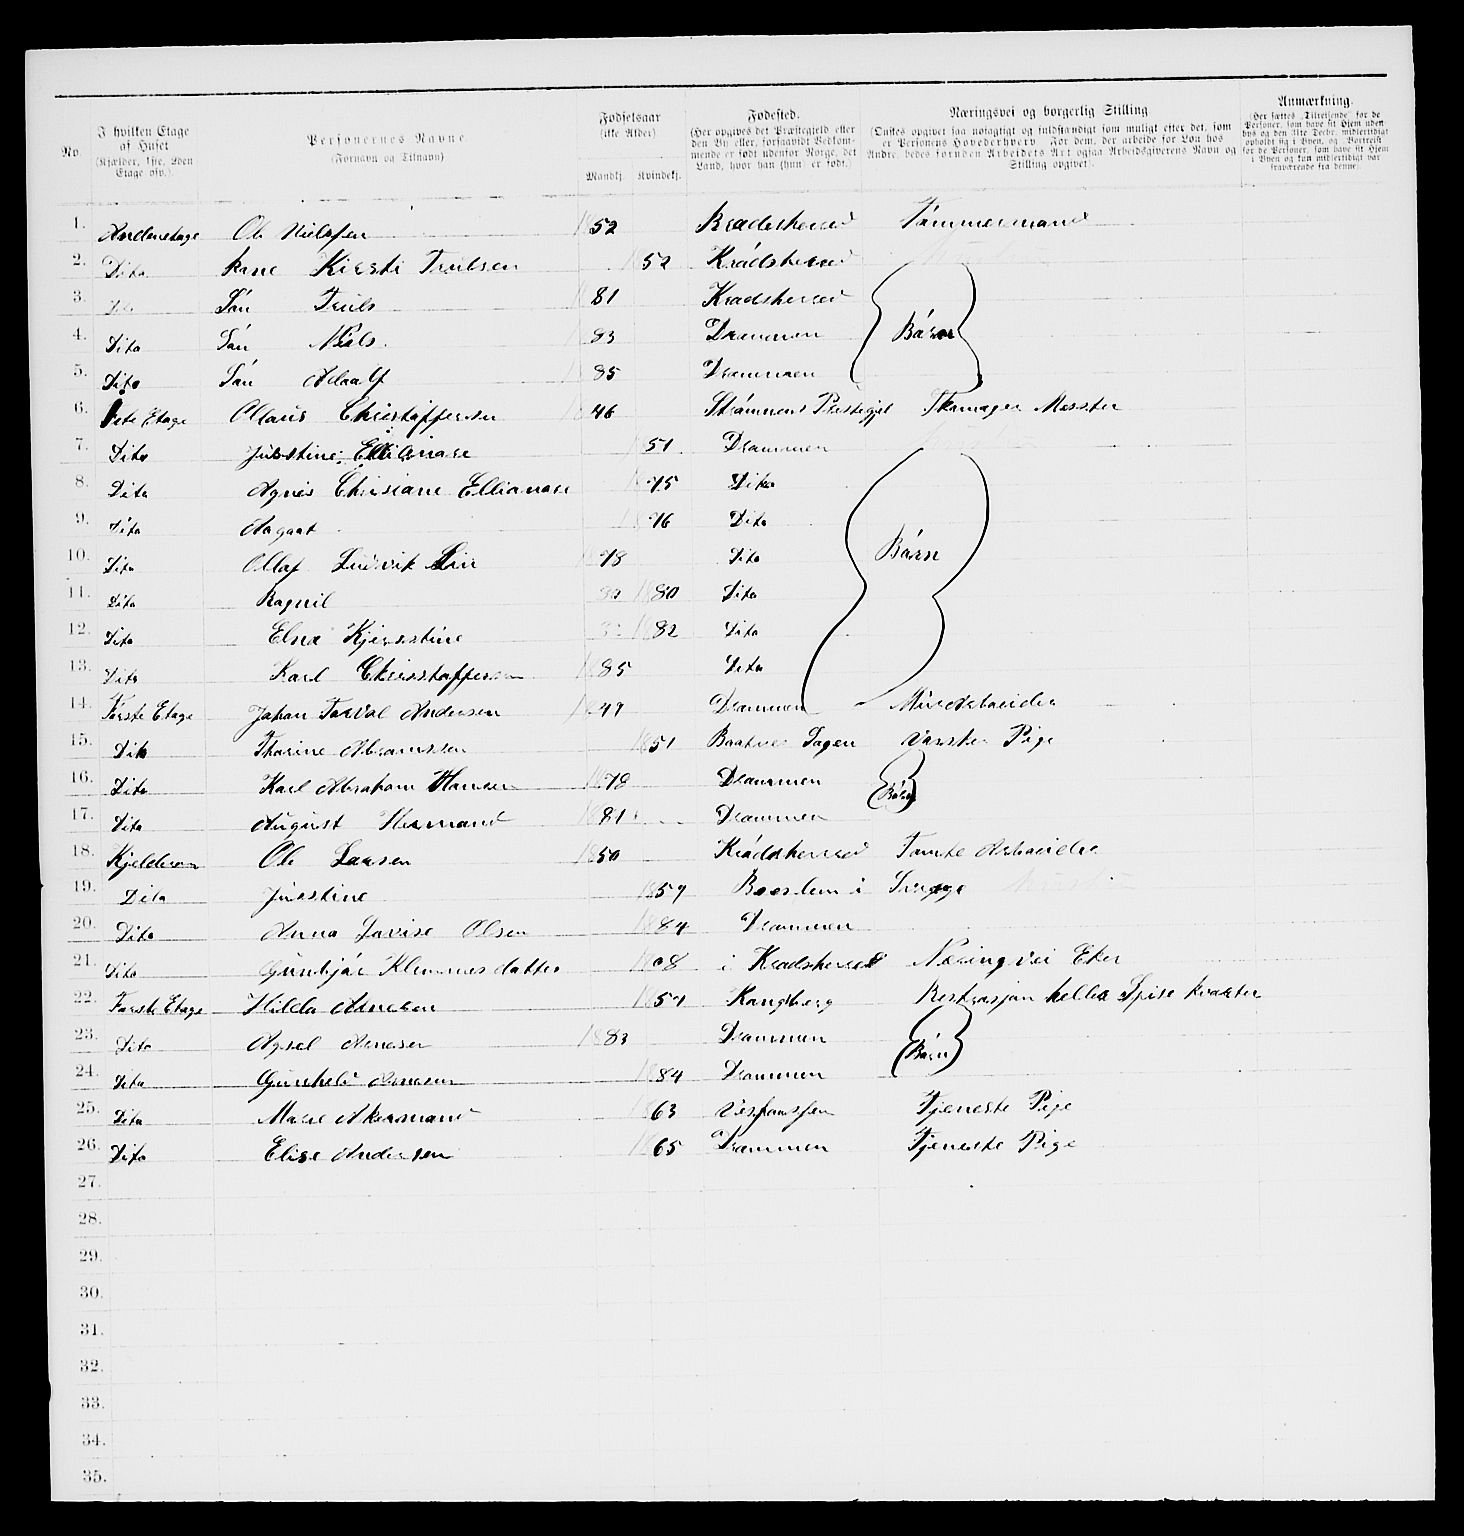 No. I hvilken Etage af Huset (Kjælder, 1ste, 2den Etage osv.). Personernes Navne (Fornavn og Tilnavn) Fødselsaar (ikke Alder) Mandkj. Kvindekj. Fødested. (Her opgives det Præstegjeld eller den By eller, forsaavidt Vedkommende er født udenfor Norge, det Land, hvor han (hun) er født.) Næringsvei og borgerlig Stilling (Ønskes opgivet saa nøiagtigt og fuldstændigt som muligt efter det, som er Personens Hovederhverv. For dem, der arbeide for Løn hos Andre, bedes foruden Arbeidets Art ogsaa Arbeidsgiverens Navn og Stilling opgivet). Anmærkning. (Her sættes „Tilreisende” for de Personer, som have sit Hjem udenbys og den 31te Decbr. midlertidigt opholdt sig i Byen, og „Bortreist” for de Personer, som have sit Hjem i Byen og kun midlertidigt var fraværende fra denne).
1. Andenetage Ole Nielsen 1852 Krødsherred Tømmermand
2. Dito Ane Kirsti Trulsen 1852 Krødsherred
3. Dito Søn Truls 1881 Krødsherred
4. Dito Søn Niels 1883 Drammen Børn
5. Dito Søn Adaalf 1885 Drammen
6. Etage Ollaus Christoffersen 1846 Strømmens Skomager Messter
7. Dito Justine 1851 Drammen
8. Dito Agnes Chrisiane Ellianore 1875 Dito
9. Dito Aagaat 1876 Dito
10. Dito Ollaf Ludvik 1878 Dito Børn
11. Dito Ragnil 1880 Dito
12. Dito Elna Kjersstine 1882 Dito
13. Dito Karl Chrisstoffersen 1885 Dito
14. Første Etage Johan Torval Andersen 1849 Drammen Murarbeider
15. Dito Thorine Abramssen 1851 Vasske Pige
16. Dito Karl Abraham Hansen 1878 Drammen Børn
17. Dito August Hermand 1881 Drammen
18. Kjelderen Ole Larsen 1850 Krødsherred Tomte Arbeider
19. Dito Jusstine 1857 i Sverge
20. Dito Anna Lovise Olsen 1884 Drammen
21. Dito Gunbjør Klemmesdatter 1808 i Krødsherred Næringvei Eker
22. Første Etage Hilda Arnesen 1857 Kongsberg Resterasjon heller Spise kvarter
23. Dito Aksel Arnesen 1883 Drammen Børn
24. Dito Gunhild Arnesen 1884 Drammen
25. Dito Marie Akermand 1863 Tjeneste Pige
26. Dito Elise Andersen 1865 Drammen Tjeneste Pige
27.
28.
29.
30.
31.
32.
33.
34.
35.